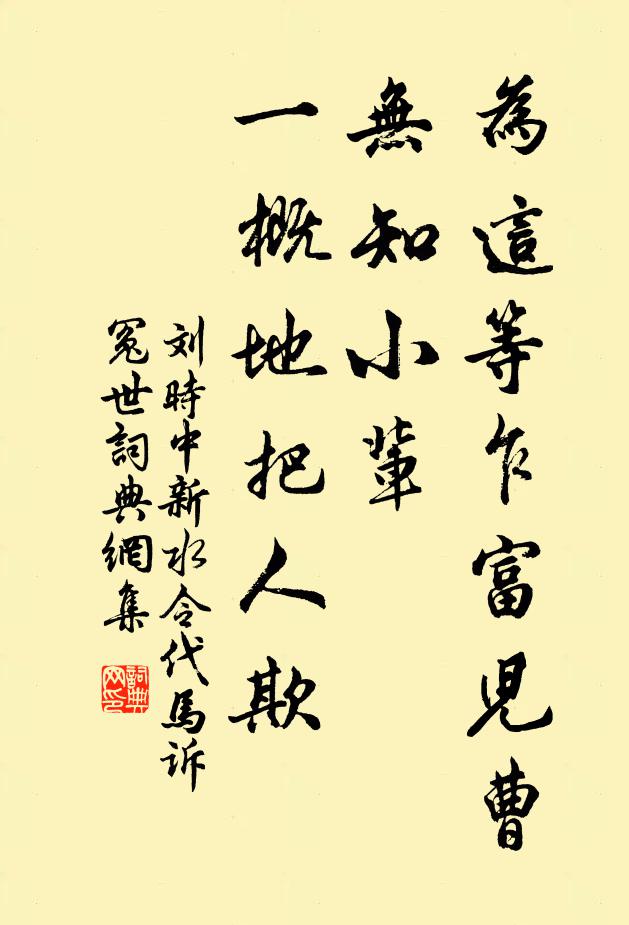 為這等乍富兒曹
無知小輩
一概地把人欺
刘時中新水令代馬訴
冤世詞典網集
詞典
网印